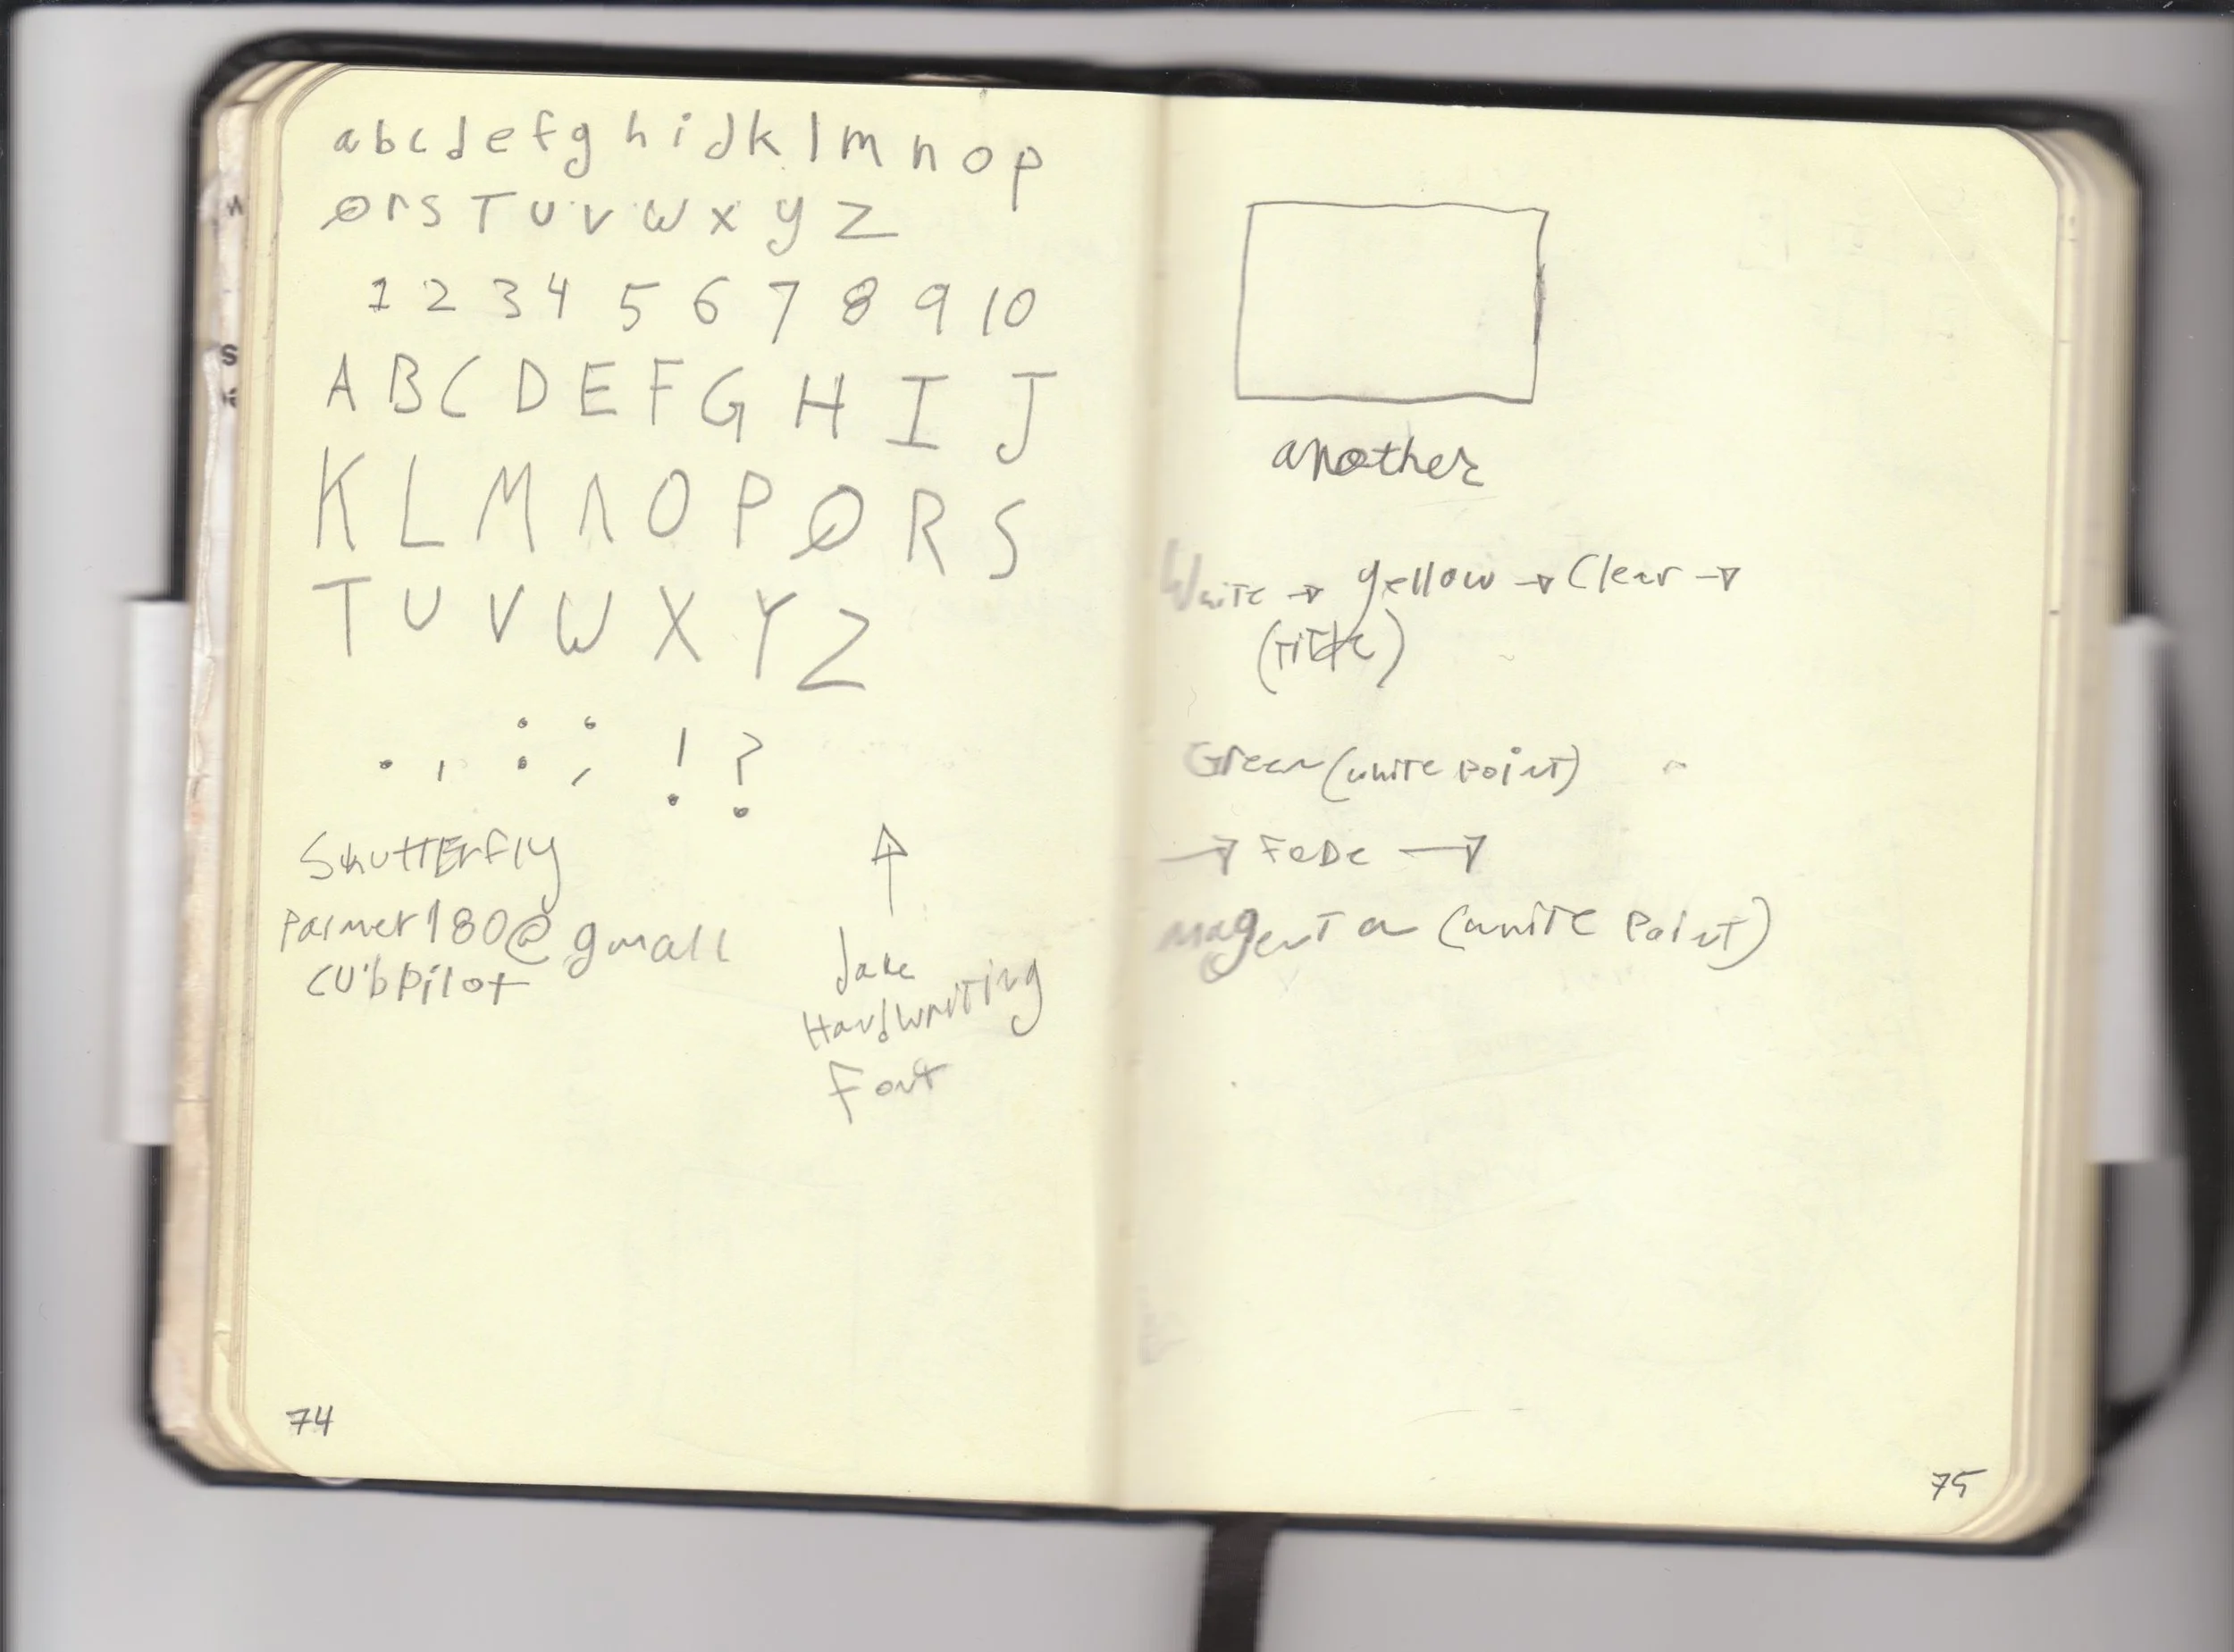 a b c d e f g h i j k l m n o p
q r s T u v w x y z
1 2 3 4 5 6 7 8 9 10
A B C D E F G H I J
K L M N O P Q R S
T U V W X Y Z
. , : ; ! ?
ShuttErfly
Palmer180@gmail
cubpilot
↑
Jake
Handwriting
Font
74
another
White → yellow → Clear →
(title)
Green (white point)
→ FaDe →
magenTa (white Point)
75